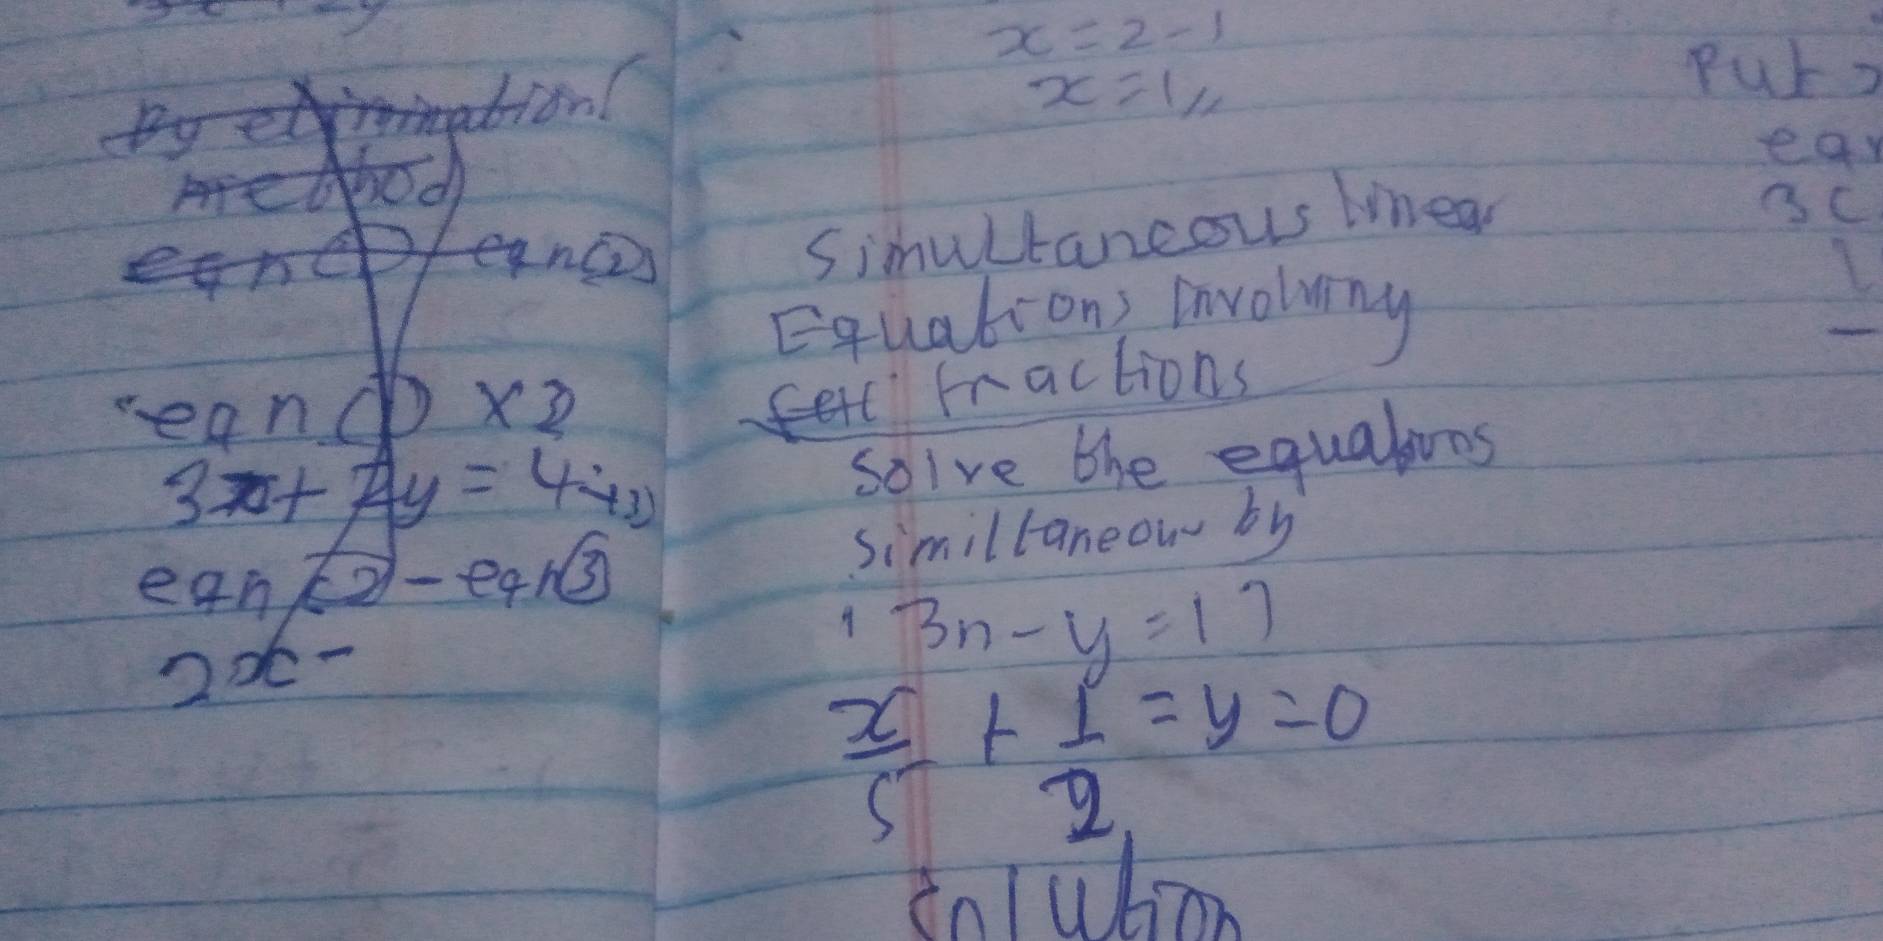 By elimination
method
eqn (1) eqn (2)
eqn (1) x2
3x + 2y = 4
eqn (2) - eqn (3)
2x -
x = 2 - 1
x = 1,,
Simultaneous linear
Equations Involving
fractions
Solve the equations
similtaneous by
1 3n - y = 17
x/5 + 1/2 = y = 0
Solution
Put
eqn
3(